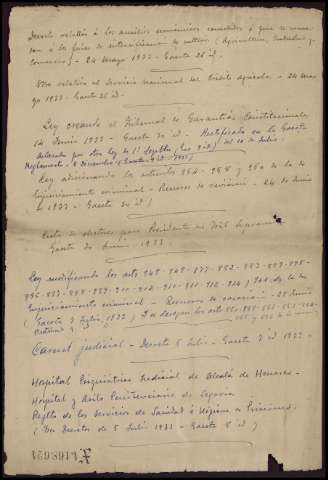 Decreto relativo a los auxilios económicos concedidos
a los fines de intensificación de cultivos (Agricultura, Industria y
Comercio) - 24 Mayo 1933 - Gaceta 26 id.
Otro relativo al Servicio nacional del Crédito agrícola - 24 Ma-
yo 1933 - Gaceta 26 id.
Ley creando el Tribunal de Garantías Constitucionales
14 Junio 1933 - Gaceta 30 id. Rectificada en la Gaceta
del 10 de Julio
Aclarada por otra ley de 1º Septbre
Reglamento - 8 Diciembre
Ley adicionando los artículos 954 - 958 y 960 de la de
Enjuiciamiento criminal - Recurso de revisión - 24 de Junio
de 1933 - Gaceta 30 id)
para Presidente del Trib. Supremo
Gaceta 30 Junio 1933.
Ley modificando los arts 848 - 849 - 877 - 882 - 893 - 895 -
896 - 897 - 898 - 899 - 901 - 902 - 910 - 911 - 912 - 914 y de la de
Enjuiciamiento criminal - Recurso de casación - 28 Junio
(Gaceta 7 Julio, 1933)
Carnet judicial - Decreto 5 Julio - Gaceta 7 id 1933.
Hospital Psiquiátrico Judicial de Alcalá de Henares -
Hospital y Asilo Penitenciarios de Segovia
Reglto de los Servicios de Sanidad e Higiene en Prisiones.
(Dos Decretos de 5 Julio 1933 - Gaceta 8 id)